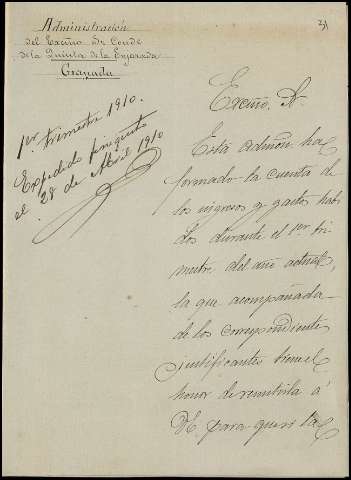 31
Administración
del Excmo Sr Conde
de la Quinta de la Enjarada
Granada
1er trimestre 1910.
Expedido finiquito
el 28 de Abril 1910
Excmo. Sr.
Está admón ha
formado la cuenta de
los ingresos y gastos habi
dos durante el 1er tri-
mestre del año actual,
la que acompañada
de los correspondientes
justificantes tiene el
honor de remitirla á
VE. para que si la